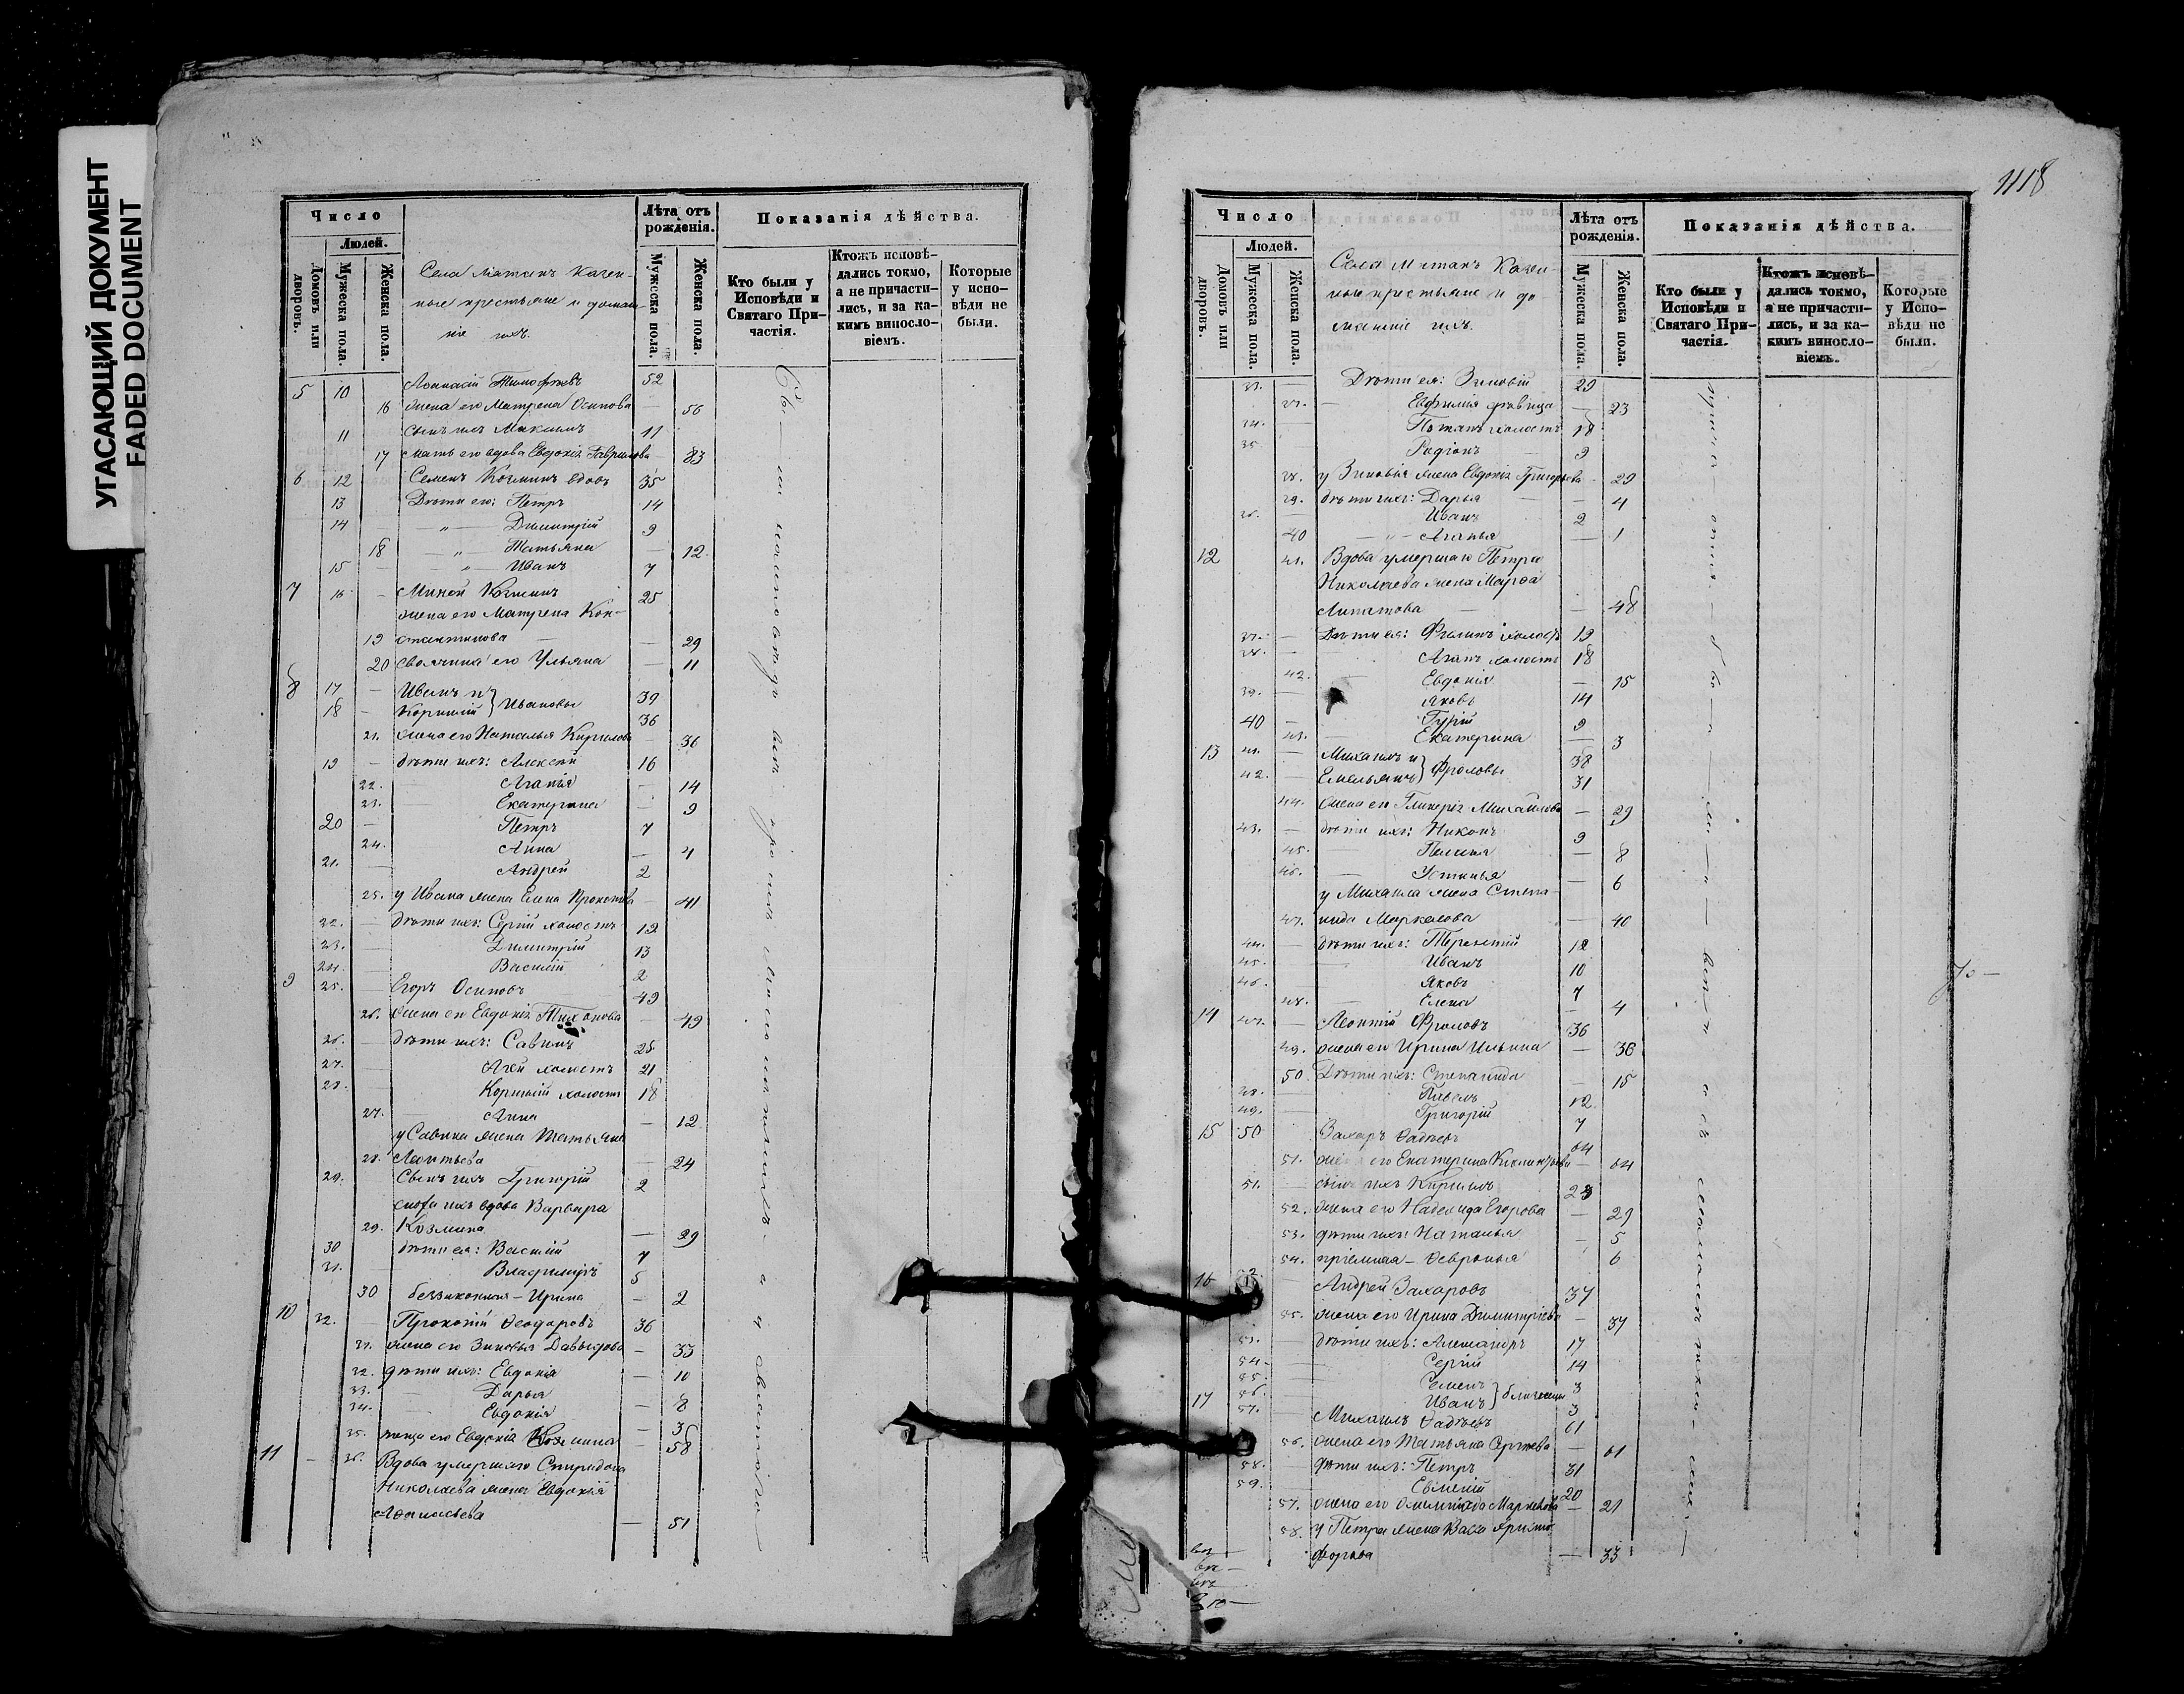 УГАСАЮЩИЙ ДОКУМЕНТ
FADED DOCUMENT
Число
Людей.
Домовъ или дворовъ.
Мужеска пола.
Женска пола.
Села Матакъ Казен-
ные крестьяне и домаш-
ніе ихъ.
Лѣта отъ рожденія.
Мужеска пола.
Женска пола.
Показанія дѣйства.
Кто были у Исповѣди и Святаго При-частія.
Ктожъ исповѣ-дались токмо, а не причасти-лись, и за ка-кимъ винословіемъ.
Которые у испо-вѣди не были.
5 10 Аѳанасій Тимофѣевъ 52
16 жена его Матрена Осипова — 56
11 сынъ ихъ Максимъ 11
17 мать его вдова Евдокія Гаврилова — 83
6 12 Семенъ Козминъ вдовъ 35
13 Дѣти его: Петръ 14
14 — " — Димитрій 9
18 — " — Татьяна — 12
15 — " — Иванъ 7
7 16 — Миней Козминъ 25
жена его Матрена Кон-
19 стантинова — 29
20 своячина его Ульяна — 11
8 17 — Иванъ и 39
18 — Корнилій } Ивановы 36
21. жена его Наталья Кирилова — 36
19 — дѣти ихъ: Алексѣй 16
22. Агапія — 14
23. Екатерина — 9
20 — Петръ 7
24. Анна — 4
21. Андрей 2
25. у Ивана жена Елена — 41
22. — дѣти ихъ: Сергій холостъ 19
23. — Димитрій 13
24. — Василій 2
9 25. — Егоръ Осиповъ 49
26. жена его Евдокія Тихонова — 49
26. — дѣти ихъ: Савинъ 25
27. — Агѣй холостъ 21
28. — Корнилій холостъ 18
27. — Анна — 12
у Савина жена Татьяна
28. Леонтьева — 24
29. Сынъ ихъ Григорій 2
сноха ихъ вдова Варвара
29. Козмина — 29
30 дѣти ея: Василій 7
31. — Владимиръ 5
30 беззаконная — Ирина — 2
10 32. — Прокопій Ѳеодоровъ 36
31. жена его Зиновья Давыдова — 33
32. дѣти ихъ: Евдокія — 10
33. — Дарья — 8
34. — Евдокія — 3
35. его Евдокія Козмина — 58
11 — 36. Вдова умершаго Спиридона
Николаева жена Евдокія
Аѳанасьева — 51
1118
Число
Людей.
Домовъ или дворовъ.
Мужеска пола.
Женска пола.
Села Матакъ Казен-
ные крестьяне и до-
машніе ихъ.
Лѣта отъ рожденія.
Мужеска пола.
Женска пола.
Показанія дѣйства.
Кто были у Исповѣди и Святаго При-частія.
Ктожъ исповѣ-дались токмо, а не причасти-лись, и за ка-кимъ винословіемъ.
Которые у Испо-вѣди не были.
33. — Дѣти ея: Зиновій 29
37. — Евфимія дѣвица — 23
34. — Потапъ холостъ 18
35. Родіонъ — 9
38. у Зиновія жена Евдокія Григорьева — 29
39. дѣти ихъ: Дарья — 4
36. — Иванъ 2
40 — " — Агапья — 1
12 41. Вдова умершаго Петра
Николаева жена Марѳа
Липатова — 48
37. — Дѣти ея: Филипъ холостъ 19
38. Агапъ холостъ 18
42. Евдокія — 15
39. — Яковъ 14
40 — Гурій 9
43. Екатерина — 3
13 41. — Михаилъ и 38
42. — Емельянъ } Фроловы 31
44. жена его Гликерія Михайлова — 29
43. — дѣти ихъ: Никонъ 9
45. — Пелагея — 8
46. — Устинья — 6
у Михаила жена Степа-
47. нида Маркелова — 40
44. — дѣти ихъ: Терентій 12
45. — Иванъ 10
46. — Яковъ 7
48. — Елена — 4
14 47. — Леонтій Фроловъ 36
49. жена его Ирина Ильина — 36
50. Дѣти ихъ: Степанида — 15
48. — Павелъ 12
49. — Григорій 7
15 50 Захаръ Ѳадѣевъ 64
51. жена его Екатерина — 64
51. сынъ ихъ Кирилъ 28
52. жена его Надежда Егорова — 29
53. дѣти ихъ: Наталья — 5
54. пріемная — Ѳевронья 6
16 Андрей Захаровъ 37
55. жена его Ирина Димитріева — 37
53. — дѣти ихъ: Александръ 17
54. — Сергій 14
55. — Семенъ 3
56. — Иванъ } близнецы 3
17 57. — Михаилъ Ѳадѣевъ 61
56. жена его Татьяна Сергѣева — 61
58. — дѣти ихъ: Петръ 31
59. Евменій 20
57. жена его — 21
58. у Петра жена Васса Христо-
форова — 33